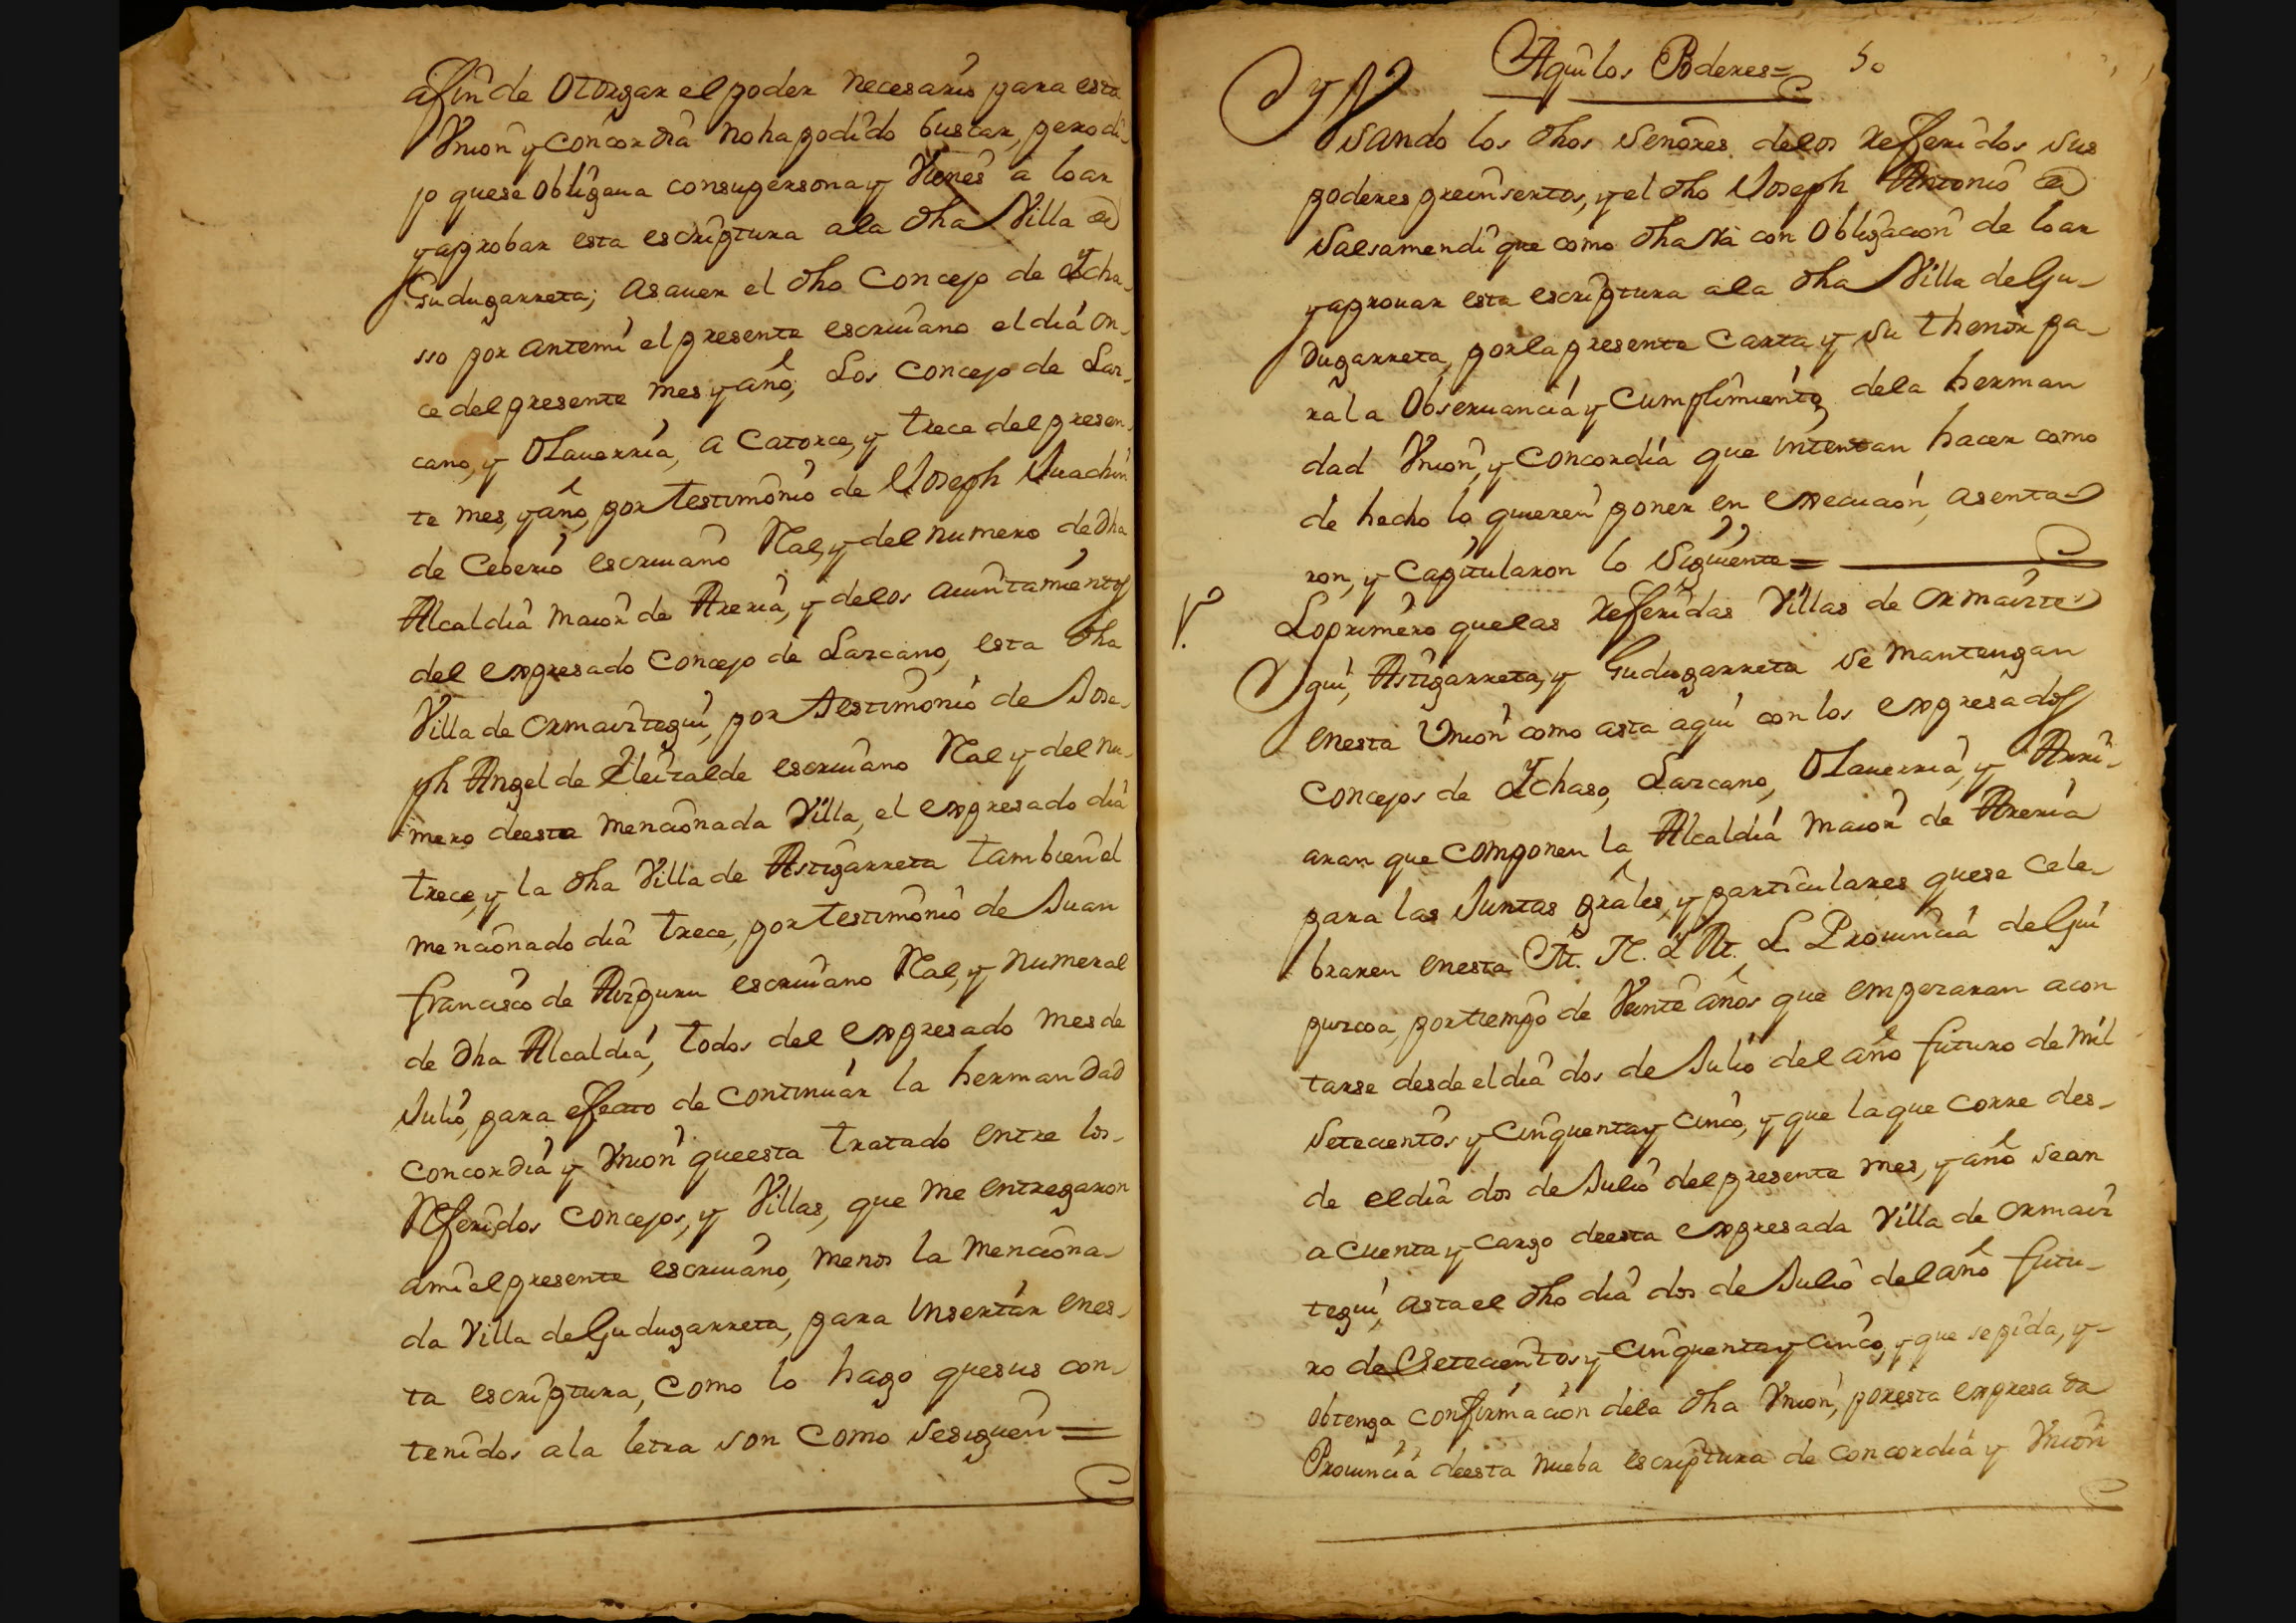 afin de otorgar el poder necesario para esta
Union y concordia no ha podido buscar, pero di-
jo que se obligaua con su persona y Vienes a loar
y aprobar esta escriptura a la dha Villa de
Gudugarreta; asauer el dho Concejo de Ycha-
sso por antemi el presente escriuano el dia on-
ce del presente mes y año; Los Concejo de Laz-
cano, y Olauerria, a Catorce, y trece del presen-
te mes, y año, por testimonio de Joseph Juachin
de Ceberio escriuano Ral, y del numero de dha
Alcaldia maior de Areria, y de los aiuntamientos
del expresado Concejo de Lazcano, esta dha
Villa de Ormaiztegui, por testimonio de Jose-
ph Angel de Eleizalde escriuano Ral y del nu-
mero de esta mencionada Villa, el expresado dia
trece, y la dha Villa de Astigarreta tambien el
mencionado dia trece, por testimonio de Juan
francisco de Aizpuru escriuano Ral, y numeral
de dha Alcaldia, todos del expresado mes de
Julio, para efecto de continuar la hermandad
concordia y Union que esta tratado entre los
Referidos Concejos, y Villas, que me entregaron
a mi el presente escriuano, menos la menciona-
da Villa de Gudugarreta, para insertar en es-
ta escriptura, como lo hago que sus con-
tenidos a la letra son como se siguen =
Aqui los Poderes = 50
Y Usando los dhos Señores de los Referidos sus
poderes preinsertos, y el dho Joseph Antonio de
Salsamendi que como dha Va con obligacion de loar
y aprouar esta escriptura a la dha Villa de Gu-
dugarreta, por la presente Carta y su thenor pa-
ra la obseruancia y cumplimiento de la herman
dad Union, y concordia que intentan hacer como
de hecho lo quieren poner en execucion, asenta-
ron, y Capitularon lo Siguiente =
1.º Lo primero que las Referidas Villas de Ormaizte-
gui, Astigarreta, y Gudugarreta se mantengan
en esta Union como asta aqui con los expresados
Concejos de Ychaso, Lazcano, Olauerria, y Arri-
aran que componen la Alcaldia maior de Areria
para las Juntas grales, y particulares que se cele-
braren en esta M. N. y M. L. Prouincia de Gui
puzcoa, por tiempo de Veinte años que empezaran a con
tarse desde el dia dos de Julio del año futuro de mil
setecientos y cinquenta y cinco, y que la que corre des-
de el dia dos de Julio del presente mes, y año sean
a cuenta y cargo de esta expresada Villa de Ormaiz
tegui, asta el dho dia dos de Julio del año futu-
ro de Setecientos y cinquenta y cinco, y que se pida, y
obtenga confirmacion de la dha Union, por esta expresada
Prouincia de esta nueba escriptura de concordia y Union